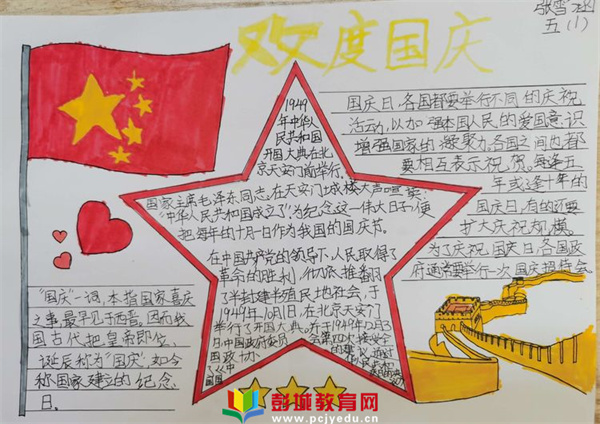 欢度国庆
张雪涵
五(1)
1949
年中华人
民共和国
开国大典在北
京天安门前举行,
国家主席毛泽东同志,在天安门城楼大声宣
“中华人民共和国成立了”,为纪念这一伟大日子,便
把每年的十月一日作为我国的国庆节。
在中国共产党的领导下,人民取得了
革命的胜利,彻底推翻
了半封建半殖民地社会,于
1949年10月1日,在北京天安门
举行了开国大典,并于1949年12月3
日中国政府委员会第四次接受全
国政协
国庆日,各国都要举行不同的庆祝
活动,以加强本国人民的爱国意识
增强国家的凝聚力,各国之间也都
要相互表示祝贺,每逢五
年或逢十年的
国庆日,有的还要
扩大庆祝规模,
为了庆祝国庆日,各国政
府通常要举行一次国庆招待会
“国庆”一词,本指国家喜庆
之事,最早见于西晋,因而我
国古代把皇帝即位、
诞辰称为“国庆”,如今
称国家建立的纪念
日。
彭城教育网
www.pcjyedu.cn